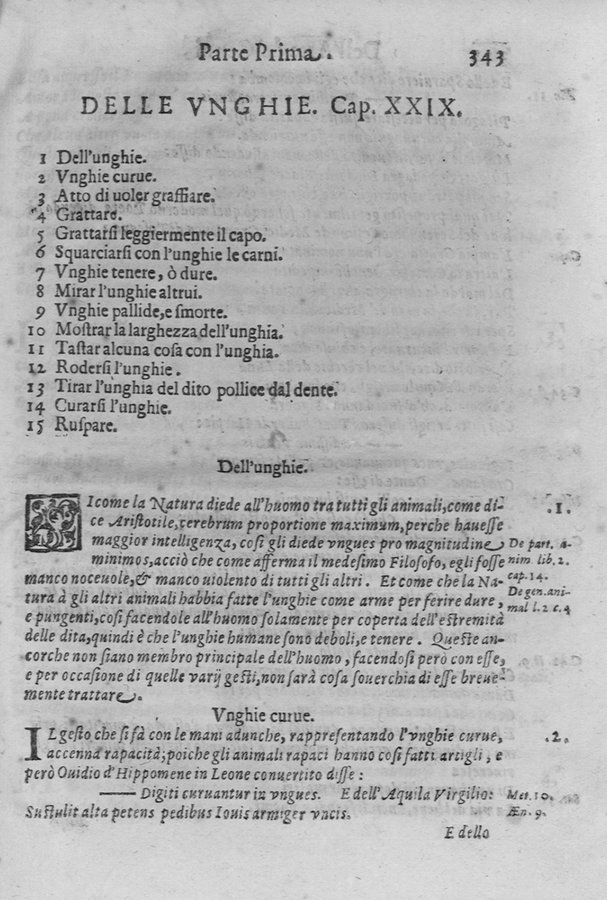 Parte Prima. 343
DELLE VNGHIE. Cap. XXIX.
1 Dell'unghie.
2 Vnghie curue.
3 Atto di uoler graffiare.
4 Grattare.
5 Grattarsi leggiermente il capo.
6 Squarciarsi con l'unghie le carni.
7 Vnghie tenere, ò dure.
8 Mirar l'unghie altrui.
9 Vnghie pallide, e smorte.
10 Mostrar la larghezza dell'unghia.
11 Tastar alcuna cosa con l'unghia.
12 Rodersi l'unghie.
13 Tirar l'unghia del dito pollice dal dente.
14 Curarsi l'unghie.
15 Ruspare.
Dell'unghie.
SIcome la Natura diede all'huomo tra tutti gli animali, come di- .1.
ce Aristotile, cerebrum proportione maximum, perche hauesse
maggior intelligenza, così gli diede vngues pro magnitudine De part. a-
minimos, acciò che come afferma il medesimo Filosofo, egli fosse nim. lib. 2.
manco noceuole, & manco uiolento di tutti gli altri. Et come che la Na- cap. 14.
tura à gli altri animali habbia fatte l'unghie come arme per ferire dure, De gen. ani-
e pungenti, così facendole all'huomo solamente per coperta dell'estremità mal l. 2 c. 4
delle dita, quindi è che l'unghie humane sono deboli, e tenere. Queste an-
corche non siano membro principale dell'huomo, facendosi però con esse,
e per occasione di quelle varij gesti, non sarà cosa souerchia di esse breue-
mente trattare.
Vnghie curue.
IL gesto che si fà con le mani adunche, rappresentando l'vnghie curue, .2.
accenna rapacità; poiche gli animali rapaci hanno così fatti artigli, e
però Ouidio d'Hippomene in Leone conuertito disse:
—— Digiti curuantur in vngues. E dell'Aquila Virgilio: Met. 10.
Sustulit alta petens pedibus Iouis armiger vncis. Æn. 9.
E dello